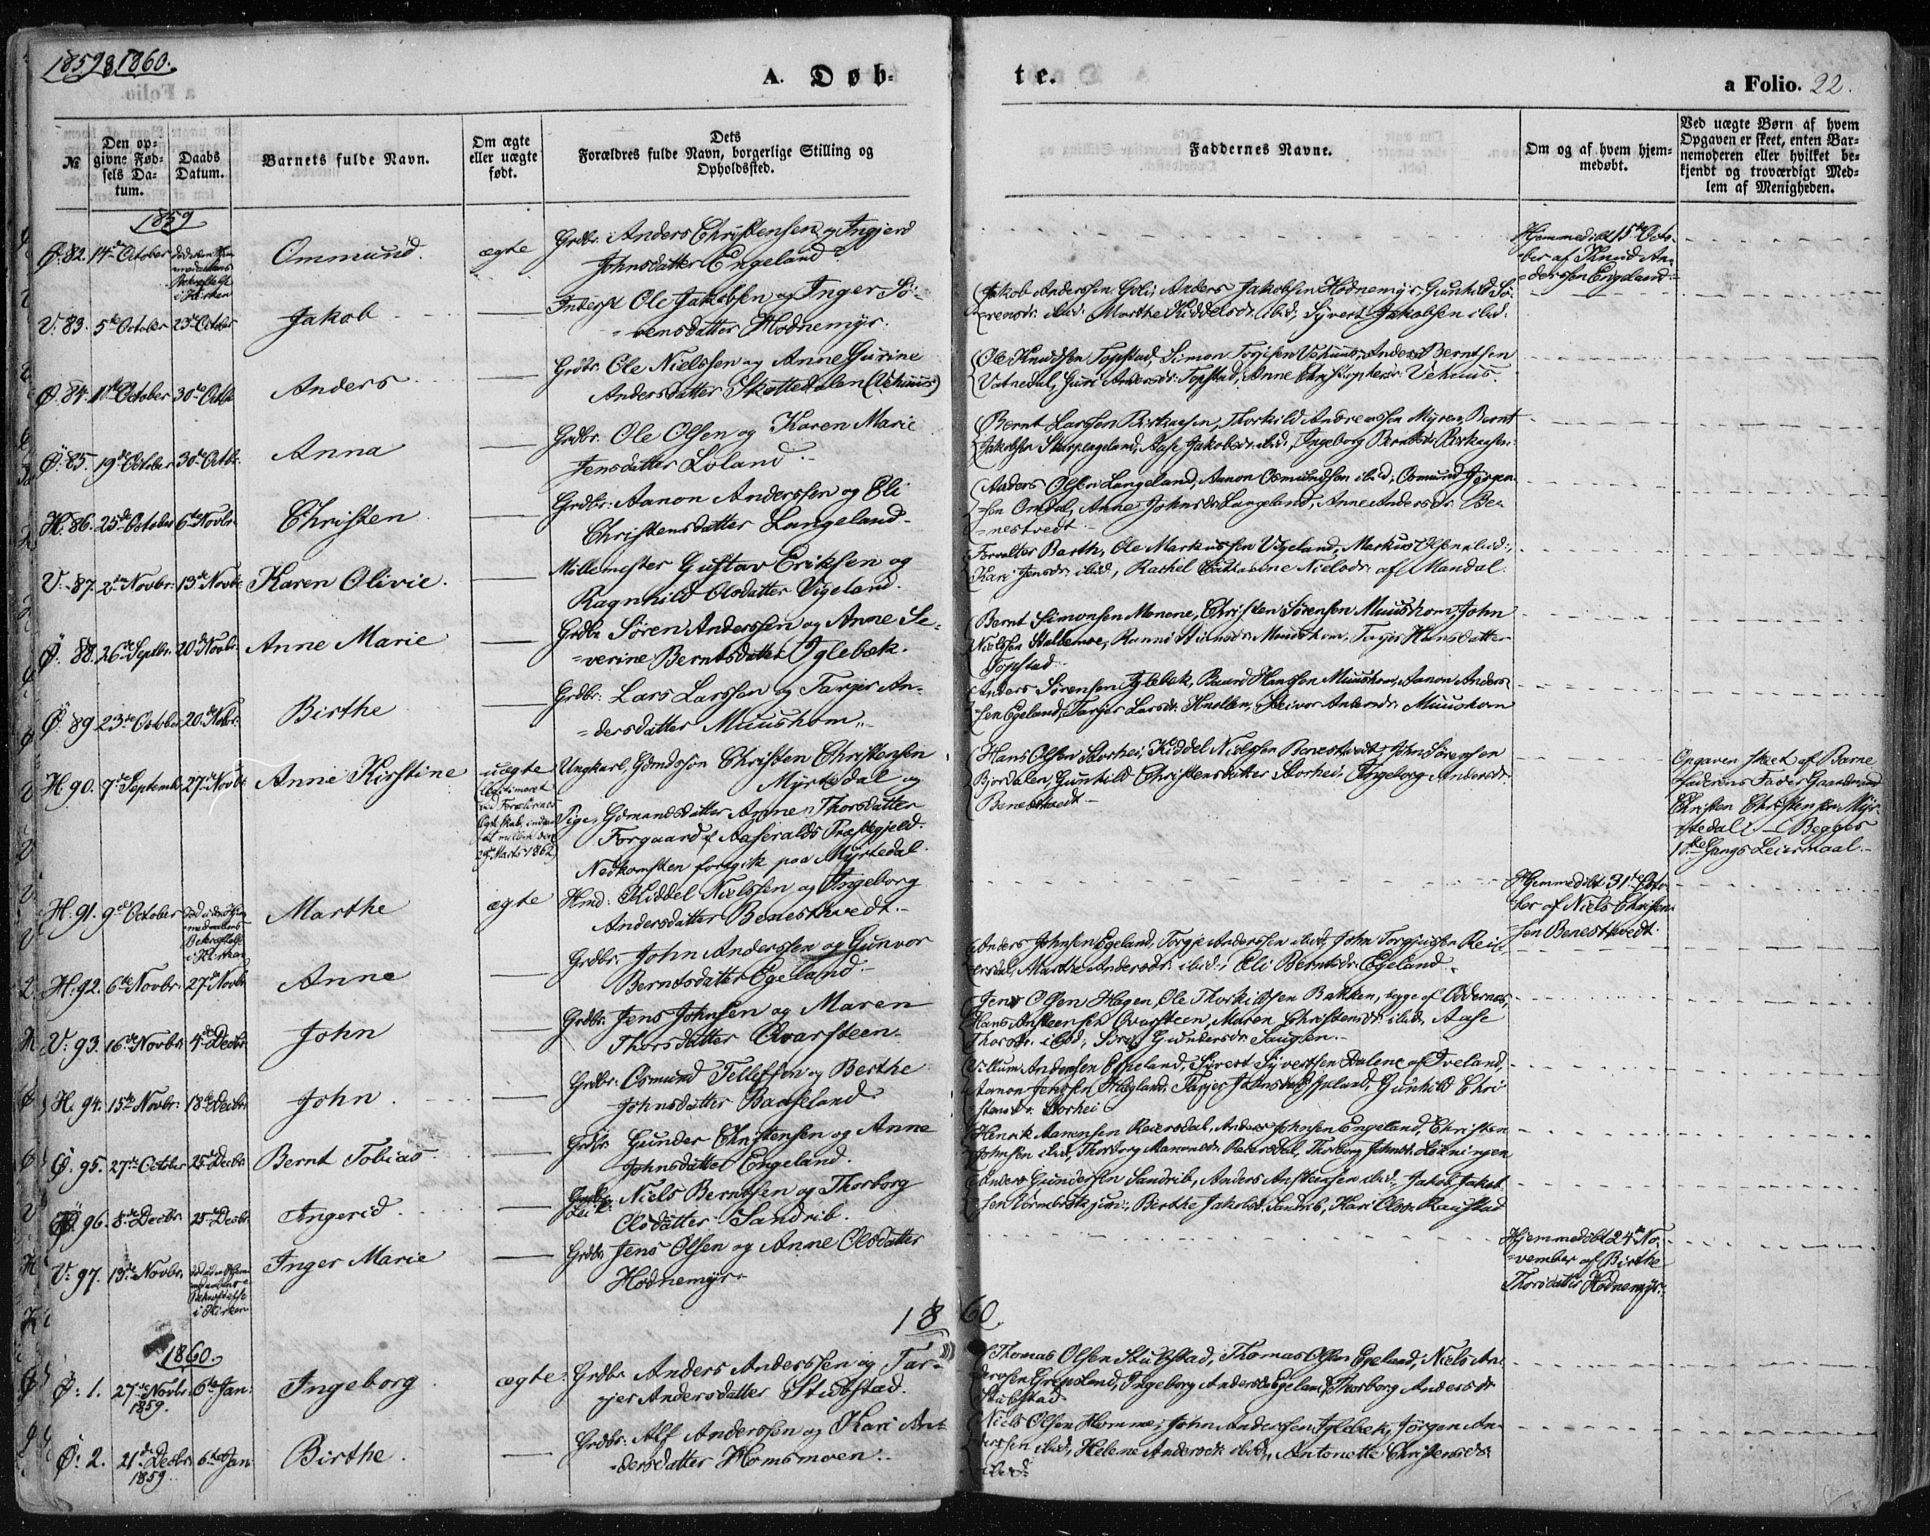 1859 & 1860.
A. Døb-
te.
a Folio. 22.
№
Den op-
givne Fød-
sels Da-
tum.
Daabs
Datum.
Barnets fulde Navn.
Om ægte
eller uægte
født.
Dets
Forældres fulde Navn, borgerlige Stilling og
Opholdssted.
Faddernes Navne.
Om og af hvem hjem-
medøbt.
Ved uægte Børn af hvem
Opgaven er skeet, enten Bar-
nemoderen eller hvilket be-
kjendt og troværdigt Med-
lem af Menigheden.
1859
Ø. 82. 14de October
Ommund. ægte Grdbr. Anders Christensen og Ingjerd
Johnsdatter Engeland
Hjemmedøbt 15de Octo-
ber af Knud An-
derssen Engeland.
V. 83. 5te October 23 October Jakob Inderst Ole Jakobsen og Inger Sø-
rensdatter Hodnemyr.
Jakob Anderssen Goli, Anders Jakobsen Hodnemyr, Gunhild Sø-
rensdr. ibid. Marthe Kiddelsdr. ibid. Syvert Jakobsen ibid.
Ø. 84. October 30 Octbr. Anders Grdbr. Ole Nielssen og Anne Gurine
Andersdatter Skottedalen (Vehuus)
Ole Knudsen Topstad, Simon Torjesen Vehuus, Anders Berntsen
Vatnedal, Guri Andersdr. Topstad, Anne Christophersdr. Vehuus.
Ø. 85. 19de October 30te Octbr. Anna Grdbr. Ole Olsen og Karen Marie
Jensdatter Løland.
Bernt Larssen Birkaasen, Thorkild Andreassen Myren, Bernt
Jakobsen Skarpengeland, Aase Jakobsdr. ibid, Ingeborg Berntsdr. Birkaasen.
H. 86. 25de October 6te Novbr. Christen Grdbr: Aanon Anderssen og Eli
Christensdatter Langeland.
Anders Olsen Langeland, Aanon Osmundsen ibid, Osmund Jørgen-
sen Omdal, Anne Johnsdr. Langeland, Anne Andersdr. Be-
nestvedt
V. 87. 2den Novbr. 13de Novbr. Karen Olivie. Møllemester Gustav Eriksen og
Ragnhild Olsdatter Vigeland.
Forvalter Barth, Ole Markussen Vigeland, Markus Olsen ibid.,
Kari Jensdr. ibid, Rachel Cathrine Nielsdr. af Mandal.
Ø. 88. 26de Septbr. 20de Novbr. Anne Marie Grdbr. Søren Anderssen og Anne Se-
verine Berntsdatter Iglebæk.
Bernt Simonsen Monene, Christen Sørensen Muushom, John
Nielssen Hallemoe, Hansdr. Muushom, Tarjer Hansdatter
Topstad.
Ø. 89 23de October 20de Novbr. Birthe Grdbr. Lars Larssen og Tarjer An-
dersdatter Muushom.
Anders Sørensen Iglebæk, Baard Hanssen Muushom, Aanon Anders-
sen Egeland, Tarjer Larsdr. Knollen, Andersdr. Muushom
H. 90. 7de Septemb. 27de Novbr. Anne Kirstine uægte Ungkarl, Gdmdssøn Christen Christensen
Myrtedal og
Pige, Gdmandsdatter Anne Thorsdatter
Forgaard af Aaseralds Præstegjeld.
Nedkomsten foregik paa Myrtedal.
Legitimeret
ved Forældrenes
29de Marts 1862
Hans Olsen Storhei, Kiddel Nielssen Benestvedt, John Sørenssen
Bjordalen, Gunhild Christensdatter Storhei, Ingeborg Andersdr.
Benestvedt
Opgaven skeet af Barne-
faderens Fader Gaardmand
Christen Christensen Myr-
tedal. — Begges
1ste Gangs Leiermaal.
H. 91. 9de October Marthe ægte Hmd. Kiddel Nielssen og Ingeborg
Andersdatter Benestvedt.
Hjemmedøbt 31te Octo-
ber af Niels Christen-
sen Benestvedt.
H. 92. 6te Novbr. 27 Novbr. Anne Grdbr. John Anderssen og Gunvor
Berntsdatter Egeland.
Anders Johnsen Egeland, Torgje Anderssen ibid, John Torgjussen Rei-
ersdal, Marthe Andersdr. ibid, Eli Berntsdr. Egeland.
V. 93. 16de Novbr. 4de Decbr. John Grdbr. Jens Johnsen og Maren
Thorsdatter Qvarsteen.
Jens Olsen Hagen, Ole Thorkildsen Bakken, begge af Oddernes,
Hans Ansteensen Qvarsteen, Maren Christensdr. ibid, Aase
Thorsdr. ibid, Gundersdr.
H. 94. 15de Novbr. 18de Decbr. John. Grdbr. Osmund Tellefsen og Berthe
Johnsdatter Baaseland.
Villum Anderssen Espeland, Syvert Syvertsen Dalene af Iveland,
Aanon Jenssen Hægland, Tarjer Johnsdr. Espeland, Gunhild Chri-
stensdr. Storhei
Ø. 95. 27de October 25de Decbr. Bernt Tobias Grdbr. Gunder Christensen og Anne
Johnsdatter Engeland.
Henrik Aanensen Reiersdal, Anders Johnsen Engeland, Christen
Johnsen ibid, Thorborg Aanensdr. Reiersdal, Thorborg Johnsdr.
Ø. 96. 8de Decbr. 25de Decbr. Ingerid. Niels Berntsen og Thorborg
Olsdatter Sandrib.
Anders Gundersen Sandrib, Anders Ansteinsen ibid, Jakob Jakob-
sen jun., Berthe Jakobsd. Sandrib, Kari Olsdr. Raustad
V. 97. 13de Novbr. Inger Marie Grdbr. Jens Olsen og Anne Olsdatter
Hodnemyr.
Hjemmedøbt 24de No-
vember af Birthe
Thorsdatter Hodnemyr.
1860
1860.
Ø. 1. 27de Novbr. 6te Jan. Ingeborg ægte. Grdbr. Anders Anderssen og Tar-
1859. jer Andersdatter Stubstad.
Thomas Olsen Stubstad, Thomas Olsen Egeland, Niels An-
derssen Greipsland, Ingeborg Andersdr. Egeland, Thorborg Andersdr.
Stubstad
Ø. 2. 21de Decbr. 6te Jan. Birthe. Grdbr. Alf Anderssen og Kari An-
1859. dersdatter Homsmoen.
Niels Olsen Homme, John Anderssen Iglebæk, Jørgen An-
derssen ibid, Helene Andersdr. ibid, Antonette Christensdr.
ibid.